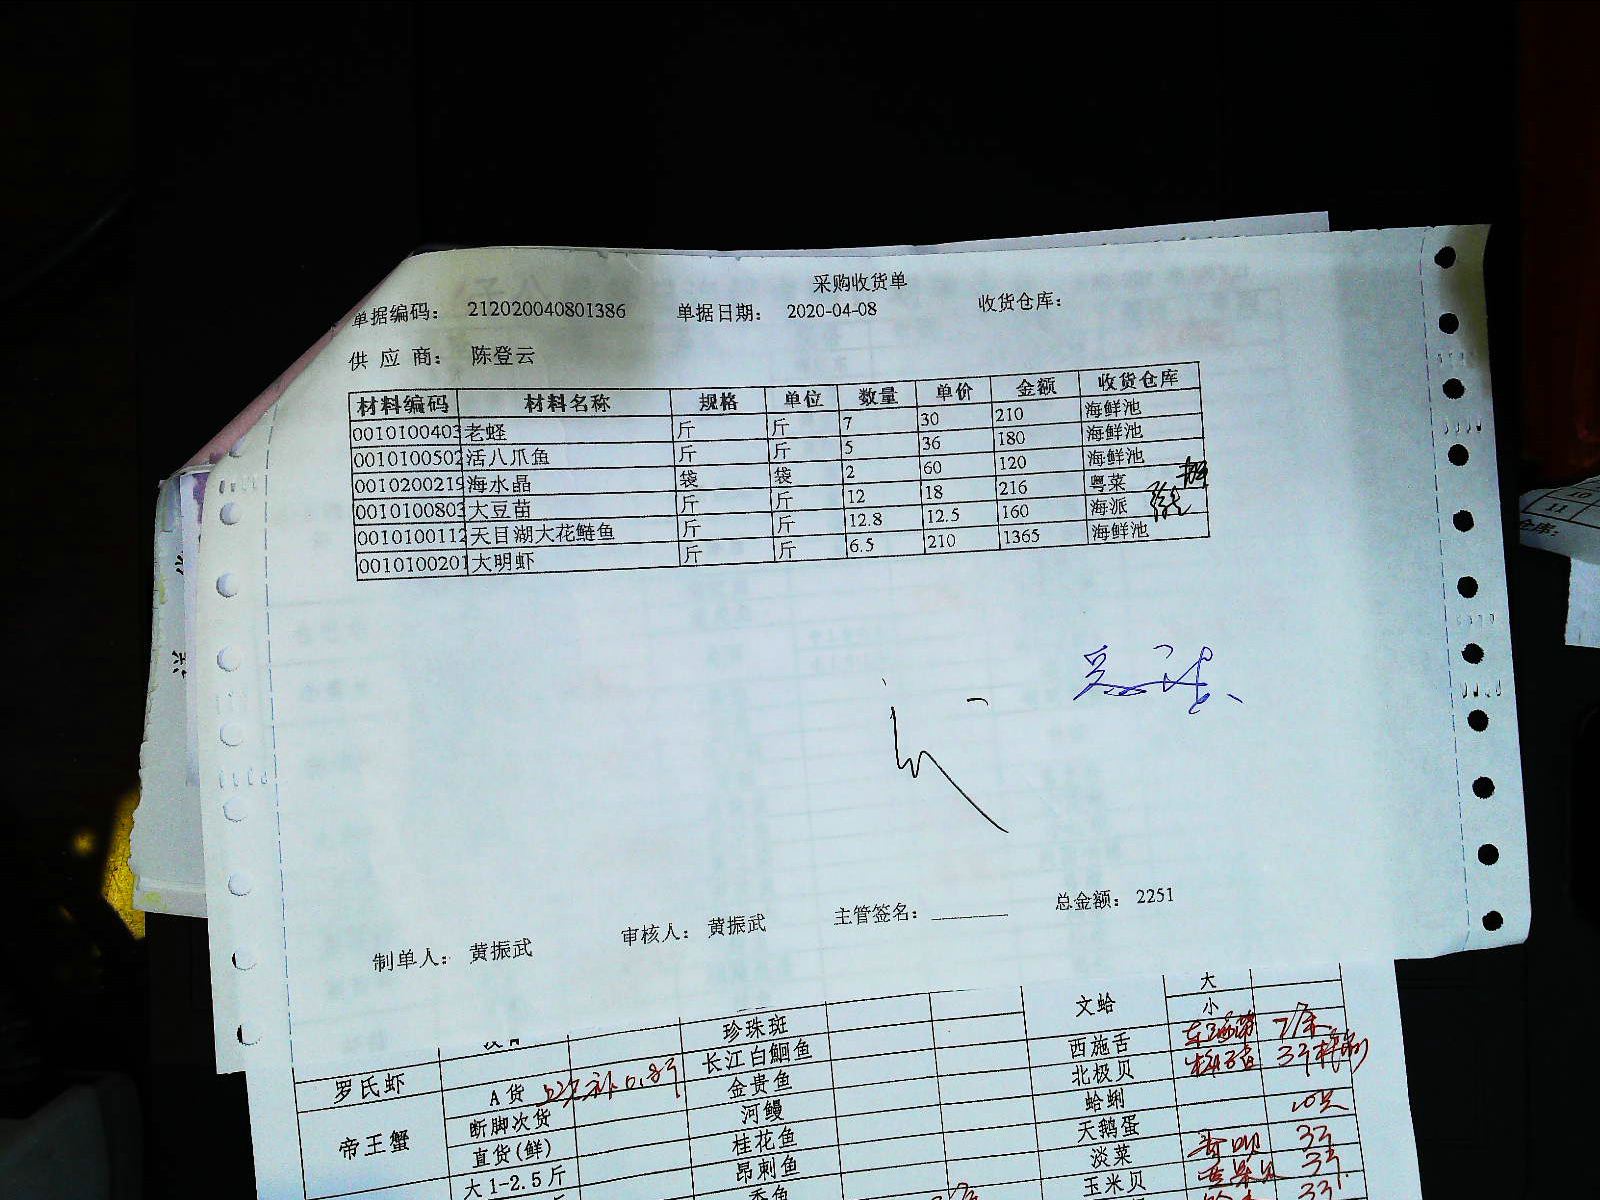 采购收货单
单据编码： 212020040801386 单据日期： 2020-04-08 收货仓库：
供 应 商： 陈登云
材料编码 材料名称 规格 单位 数量 单价 金额 收货仓库
0010100403 老蛏 斤 斤 7 30 210 海鲜池
0010100502 活八爪鱼 斤 斤 5 36 180 海鲜池
0010200219 海水晶 袋 袋 2 60 120 海鲜池
0010100803 大豆苗 斤 斤 12 18 216 粤菜
0010100112 天目湖大花鲢鱼 斤 斤 12.8 12.5 160 海派
0010100201 大明虾 斤 斤 6.5 210 1365 海鲜池
制单人： 黄振武 审核人： 黄振武 主管签名： 总金额： 2251
珍珠斑 文蛤 大
小
罗氏虾 长江白鮰鱼 西施舌
A货 上次补0.8斤 金贵鱼 北极贝
帝王蟹 断脚次货 河鳗 蛤蜊
直货(鲜) 桂花鱼 天鹅蛋
大1-2.5斤 昂刺鱼 淡菜 3斤
玉米贝 3斤
10
11
仓库: